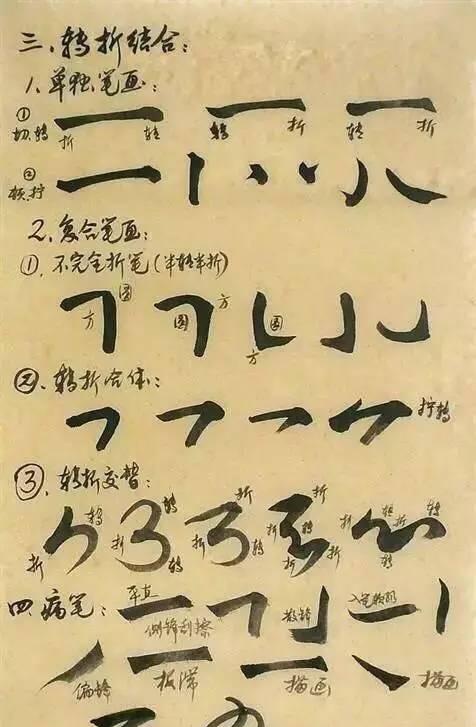 三、转折结合：
1、单独笔画：
① 切、转 折 转 转 折 转 折
② 顿、拧
2、复合笔画：
①、不完全折笔（半转半折）
方 圆 圆 方 圆 方
②、转折合体：
拧转
③、转折交替：
折 转 折 转 转 折 折 转 折 折 转 折 折 转 折 转 转
四、病笔：
平直 侧锋刮擦 散锋
偏锋 板滞 描画 描画